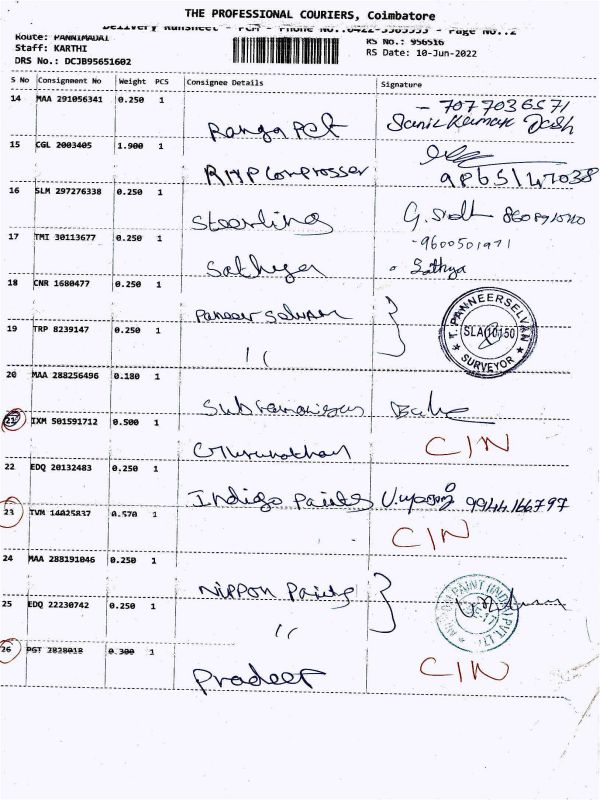 THE PROFESSIONAL COURIERS, Coimbatore
Delivery Runsheet - PCM - Phone No.:0422- - Page No.:2
Route: PANNIMADAI
Staff: KARTHI
DRS No.: DCJB95651602
RS No.: 956516
RS Date: 10-Jun-2022
S No Consignment No Weight PCS Consignee Details Signature
14 MAA 291056341 0.250 1
Ranga Pet
- 7077036571
Sanil Kumar Dash
15 CGL 2003405 1.900 1
RMP Comprosser
9865147038
16 SLM 297276338 0.250 1
Steerling
G.
17 TMI 30113677 0.250 1
Sathya
9600501971
Sathya
18 CNR 1680477 0.250 1
Paneer Selvam
T. PANNEERSELVAN
SLA 10150
SURVEYOR
19 TRP 8239147 0.250 1
" 
20 MAA 288256496 0.180 1
Subramaniyan
21 IXM 501591712 0.500 1
Gurunathan
CIN
22 EDQ 20132483 0.250 1
Indigo Paints
9944166797
23 TVM 14025837 0.570 1
CIN
24 MAA 288191046 0.250 1
Nippon Paints
PAINT (INDIA) PVT. LTD
25 EDQ 22230742 0.250 1
"
26 PGT 2828018 0.300 1
Pradeep
CIN